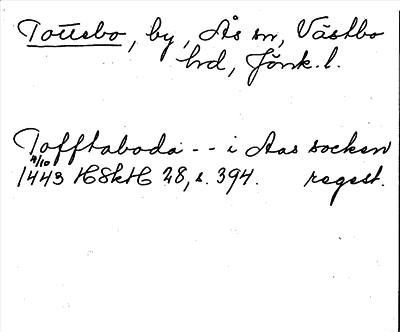 Tottebo, by, Ås sn, Västbo
hd, Jönk. l.
Tofftaboda -- i Aas socken
4/10
1443 HSkH 28, s. 394. regest.